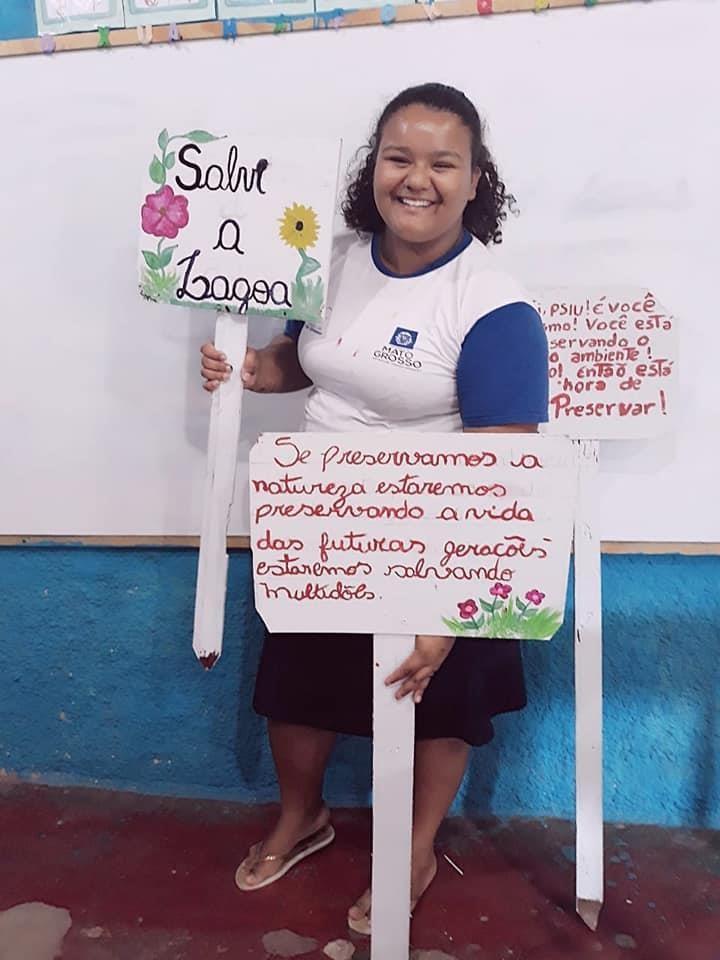 Salve
a
Lagoa
MATO
GROSSO
PSIU! É você
mo! Você está
servando o
o ambiente!
o! Então está
hora de
Preservar!
Se preservamos a
natureza estaremos
preservando a vida
das futuras gerações
estaremos salvando
multidões.